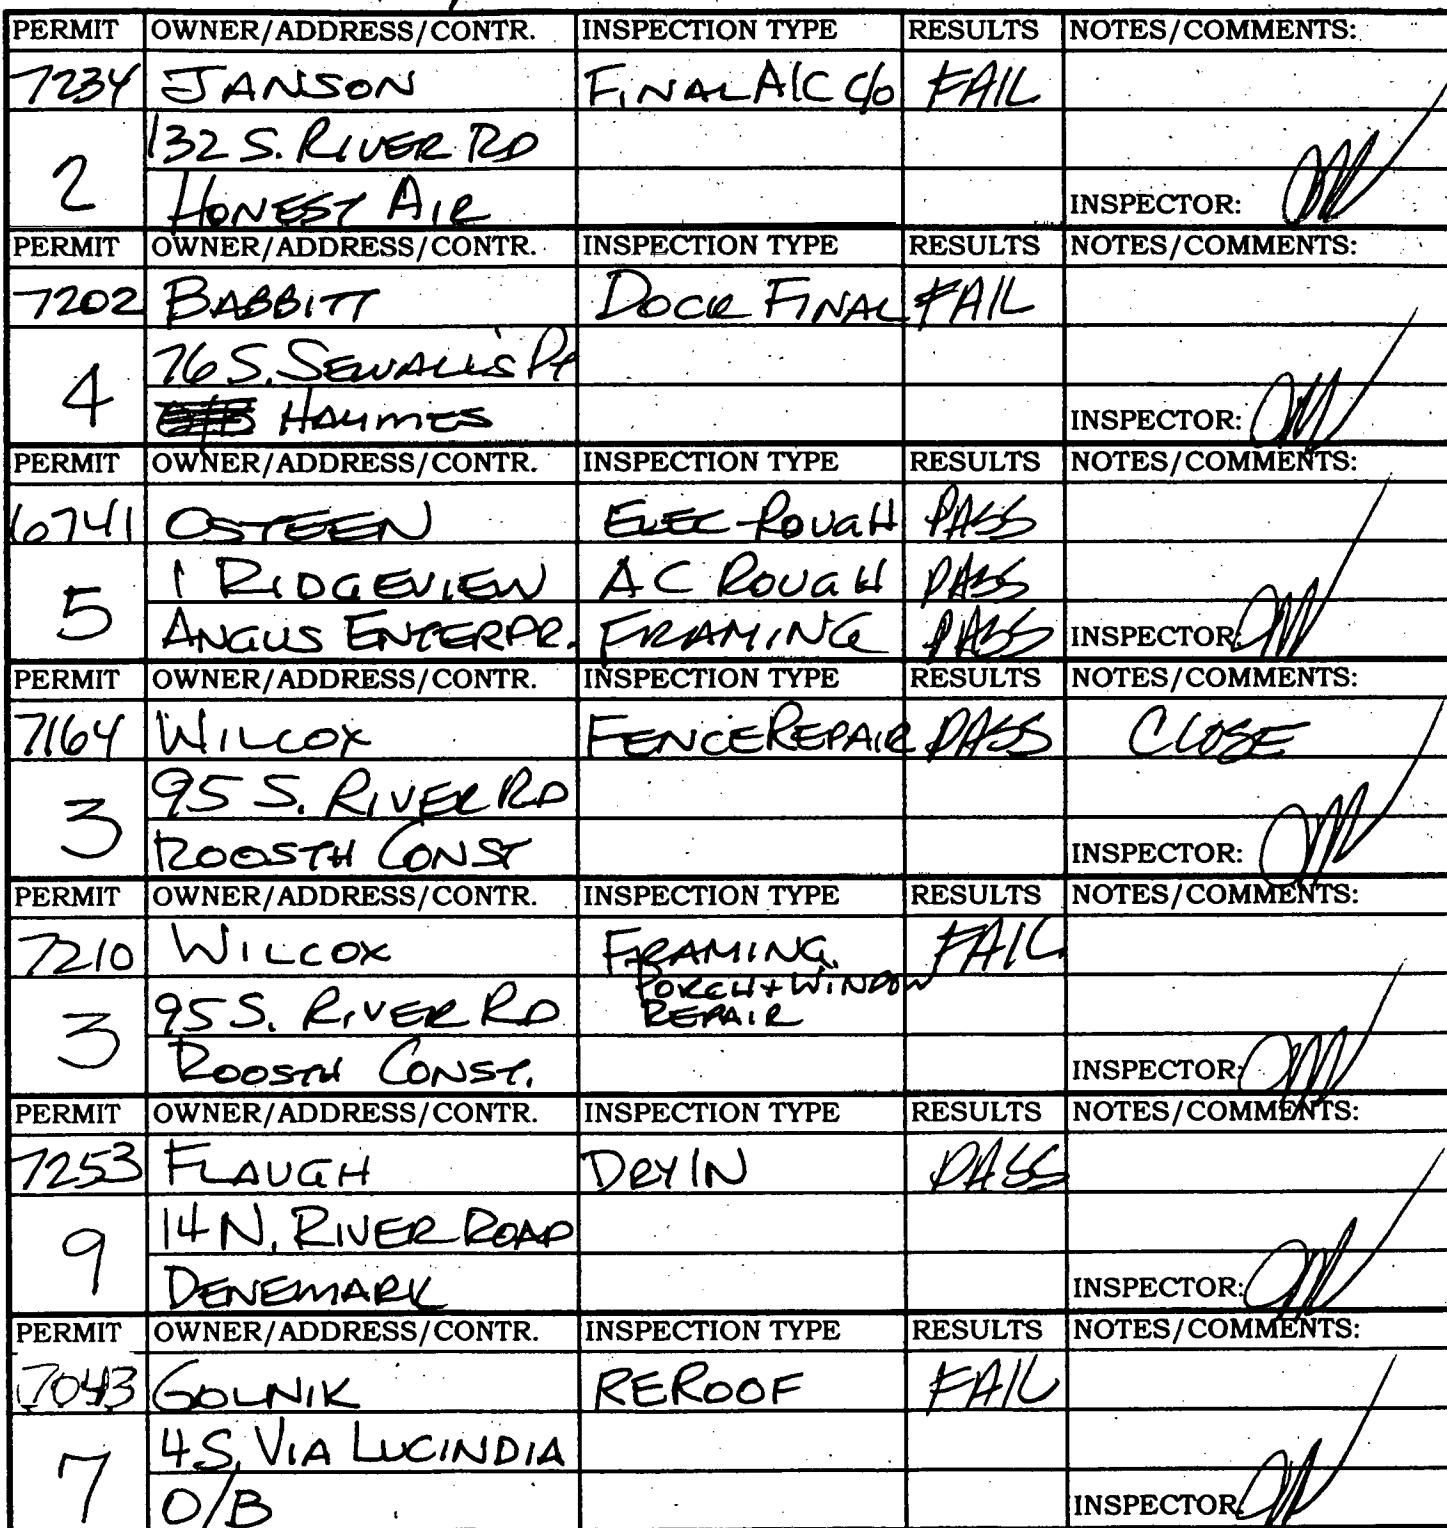 PERMIT OWNER/ADDRESS/CONTR. INSPECTION TYPE RESULTS NOTES/COMMENTS:
7234 JANSON FINAL A/C C/O FAIL
132 S. RIVER RD
2
HONEST AIR INSPECTOR:
PERMIT OWNER/ADDRESS/CONTR. INSPECTION TYPE RESULTS NOTES/COMMENTS:
7202 BABBITT DOCK FINAL FAIL
76 S. SEWALL'S PT
4
HAYMES INSPECTOR:
PERMIT OWNER/ADDRESS/CONTR. INSPECTION TYPE RESULTS NOTES/COMMENTS:
6741 OSTEEN ELEC ROUGH PASS
1 RIDGEVIEW AC ROUGH PASS
5
ANGUS ENTERPR. FRAMING PASS INSPECTOR:
PERMIT OWNER/ADDRESS/CONTR. INSPECTION TYPE RESULTS NOTES/COMMENTS:
7164 WILCOX FENCE REPAIR PASS CLOSE
95 S. RIVER RD
3
ROOSTH CONST INSPECTOR:
PERMIT OWNER/ADDRESS/CONTR. INSPECTION TYPE RESULTS NOTES/COMMENTS:
7210 WILCOX FRAMING FAIL
PORCH + WINDOW
95 S. RIVER RD REPAIR
3
ROOSTH CONST. INSPECTOR:
PERMIT OWNER/ADDRESS/CONTR. INSPECTION TYPE RESULTS NOTES/COMMENTS:
7253 FLAUGH DRY IN PASS
14 N. RIVER ROAD
9
DENEMARK INSPECTOR:
PERMIT OWNER/ADDRESS/CONTR. INSPECTION TYPE RESULTS NOTES/COMMENTS:
7043 GOLNIK REROOF FAIL
4 S. VIA LUCINDIA
7
O/B INSPECTOR: